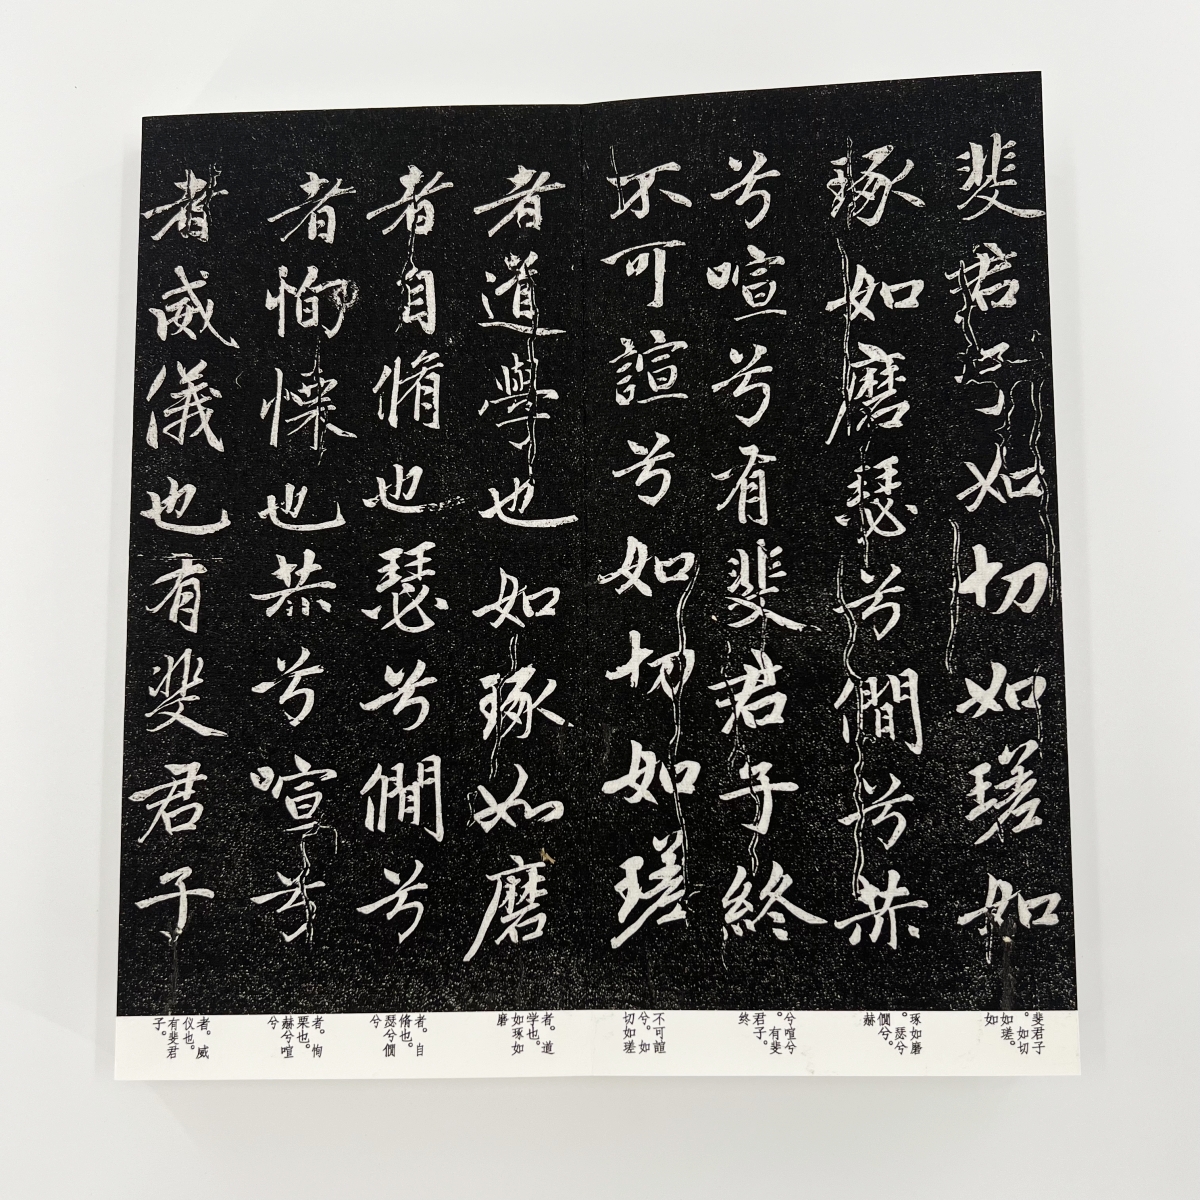 斐君子如切如瑳如
琢如磨瑟兮僩兮赫
兮喧兮有斐君子終
不可諠兮如切如瑳
者道學也如琢如磨
者自脩也瑟兮僩兮
者恂慄也赫兮喧兮
者威儀也有斐君子
斐君子
。如切
如瑳。
如
琢如磨
。瑟兮
僩兮。
赫
兮喧兮
。有斐
君子。
终
不可諠
兮。如
切如瑳
者。道
学也。
如琢如
磨
者。自
脩也。
瑟兮僩
兮
者。恂
栗也。
赫兮喧
兮
者。威
仪也。
有斐君
子。